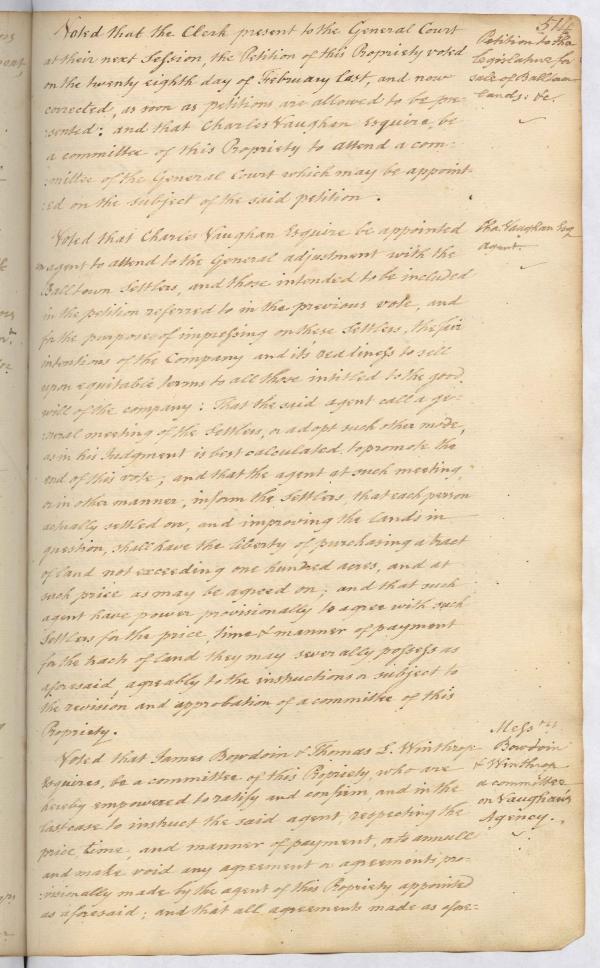 514
Noted that the Clerk present to the General Court
at their next Session, the Petition of this Propriety voted
on the twenty eighth day of February last, and now
corrected, as soon as petitions are allowed to be pre-
:sented: and that Charles Vaughan Esquire, be
a committee of this Propriety to attend a com-
:mittee of the General Court which may be appoint-
:ed on the subject of the said petition.
Petition to the
Legislature for
sale of Balltown
Lands: &c.
Voted that Charles Vaughan Esquire be appointed
agent to attend to the General adjustment with the
Balltown Settlers, and those intended to be included
in the petition referred to in the previous vote, and
for the purpose of impressing on these Settlers, the fair
intentions of the Company and it's readiness to sell
upon equitable terms to all those intitled to the good
will of the company: That the said agent call a ge-
:neral meeting of the Settlers, or adopt such other mode,
as in his Judgment is best calculated to promote the
end of this vote; and that the agent at such meeting
or in other manner, inform the Settlers, that each person
actually settled on, and improving the lands in
question, shall have the liberty of purchasing a tract
of land not exceeding one hundred acres, and at
such price as may be agreed on; and that such
agent have power provisionally to agree with such
Settlers for the price, time & manner of payment
for the tracts of land they may severally possess as
aforesaid, agreably to the instructions or subject to
the revision and approbation of a committee of this
Propriety.
Cha. Vaughan Esq
agent.
Voted that James Bowdoin & Thomas L. Winthrop
Esquires, be a committee of this Propriety, who are
hereby empowered to ratify and confirm, and in the
last case to instruct the said agent, respecting the
price, time, and manner of payment, or to annull
and make void any agreement or agreements, pro-
:visionally made by the agent of this Propriety appointed
as aforesaid; and that all agreements made as afore-
Messrs
Bowdoin
& Winthrop
a committee
on Vaughan's
Agency.